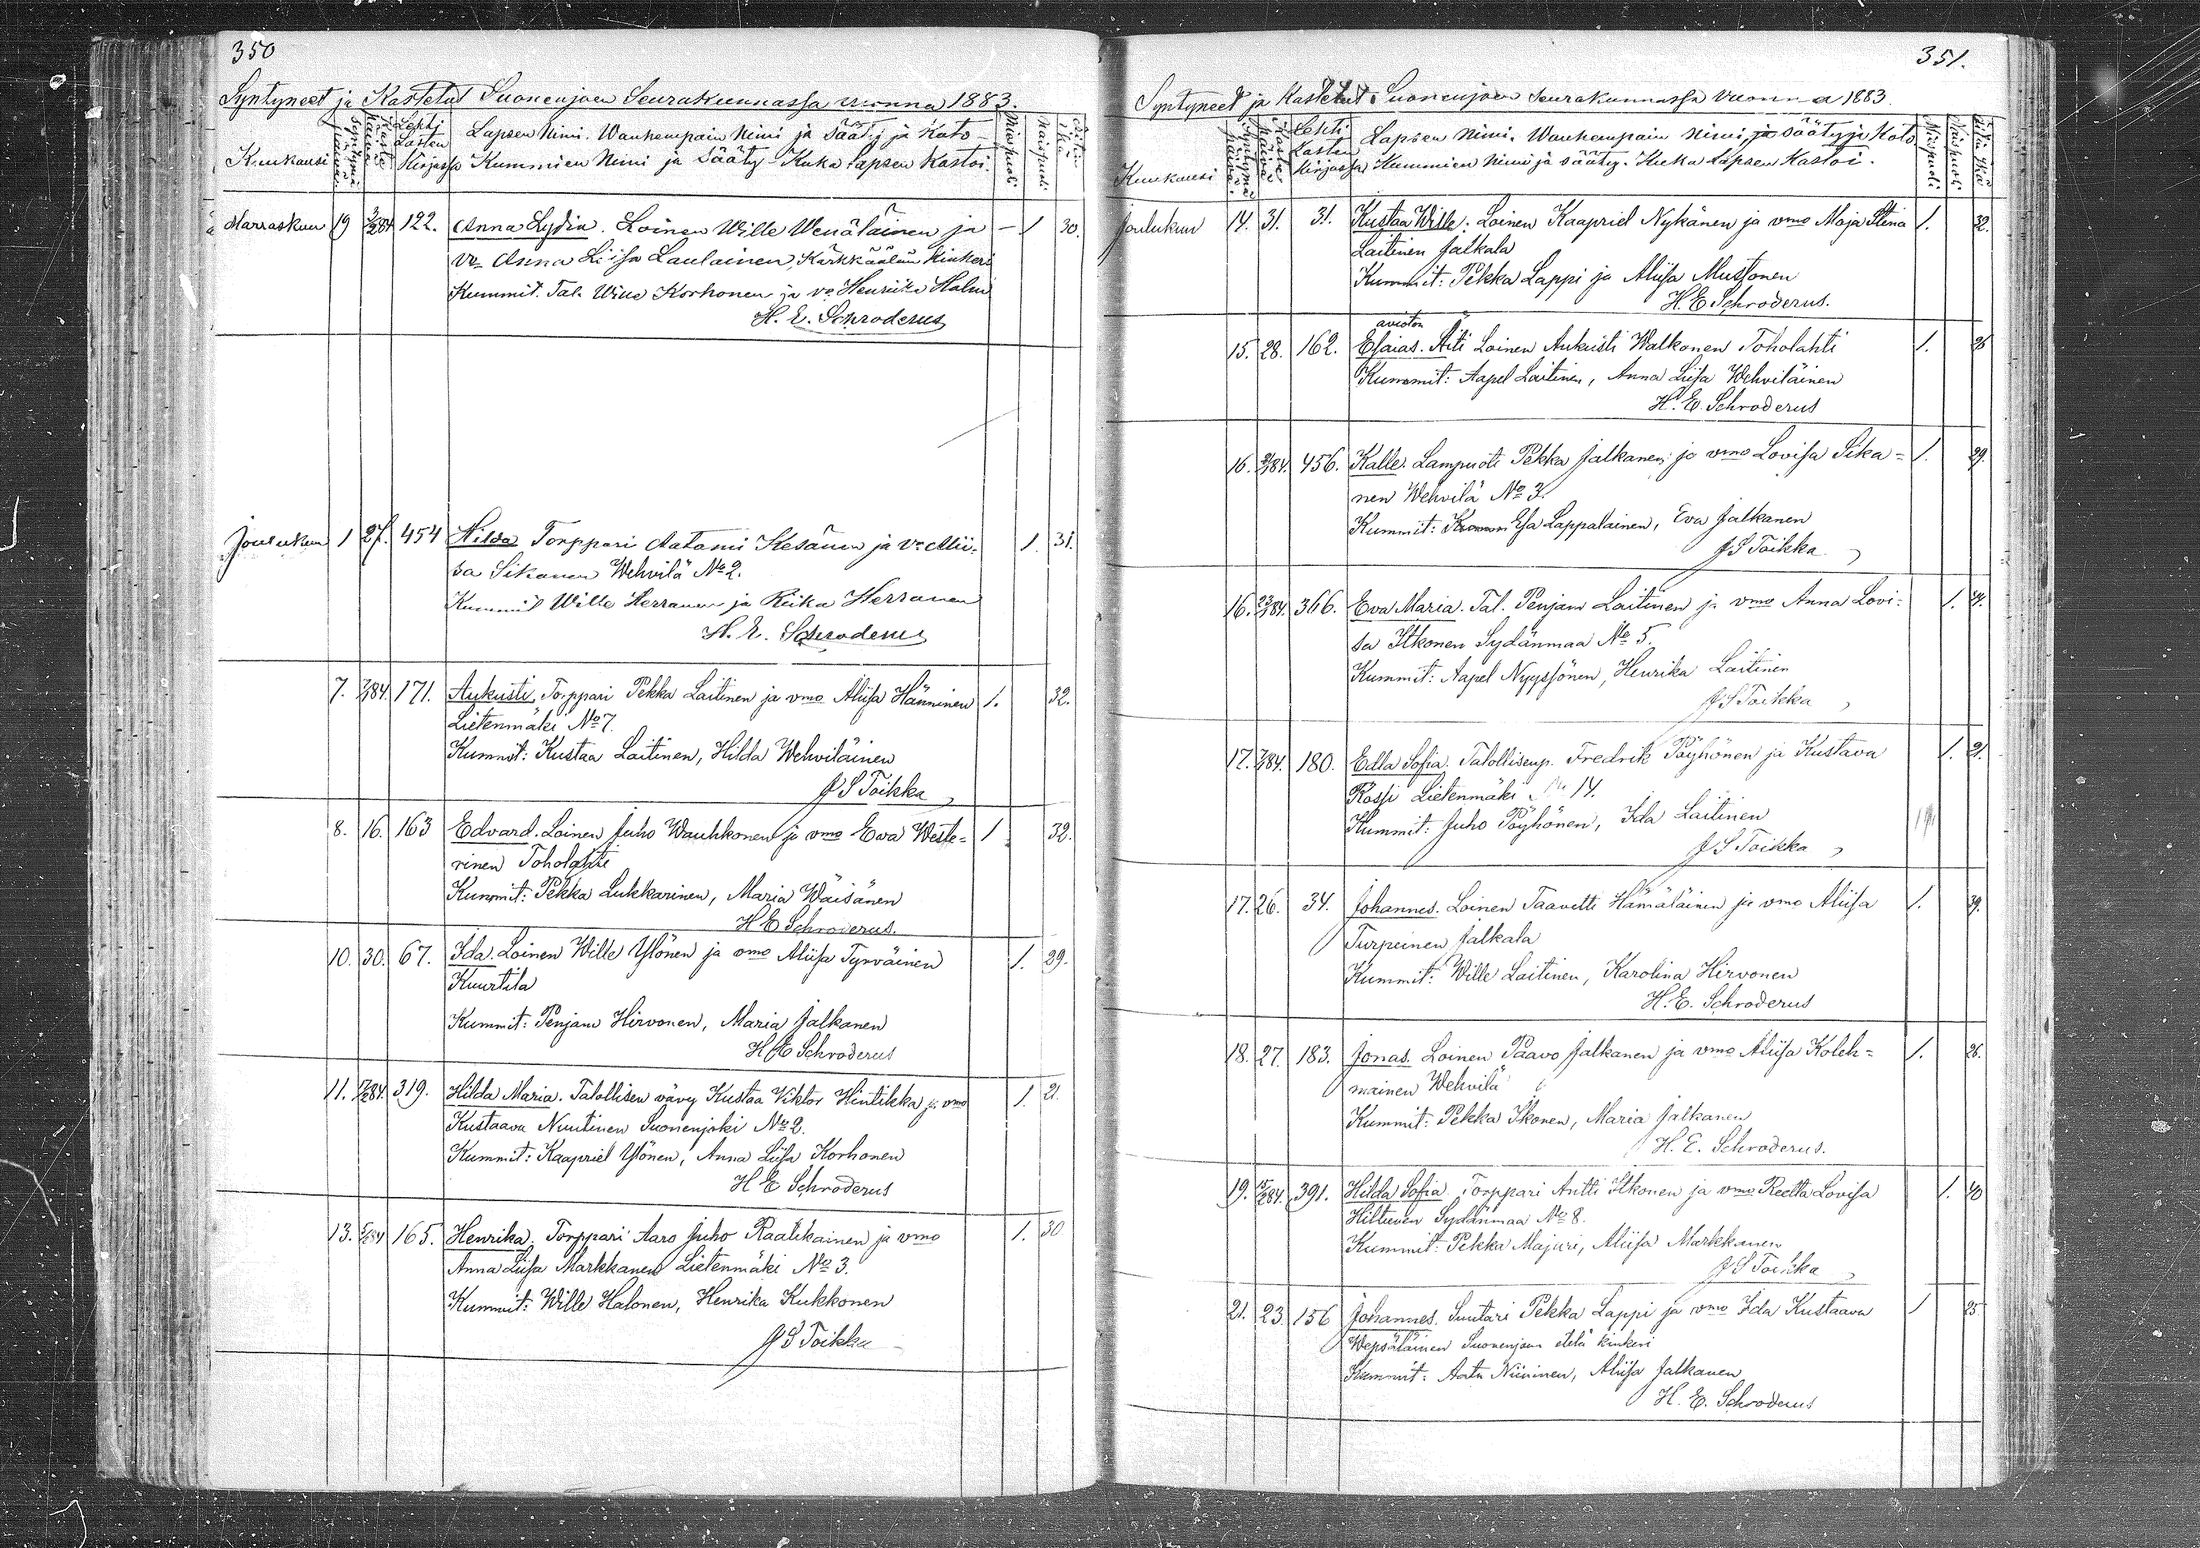 350
Syntyneet ja Kastetut Suonenjoen Seurakunnassa vuonna 1883.
Kuukausi Syntymä päivä Kaste päivä Lehti Lasten Kirjassa Lapsen Nimi. Wanhempain Nimi ja Sääty ja Koto
Kummien Nimi ja Sääty Kuka lapsen kastoi. Miespuoli Naispuoli Äitin Ikä
Marraskuu 19 2/2 84 122. Anna Lydia. Loinen Wille Wenäläinen ja — 1 30.
vo Anna Liisa Laulainen, Kärkkäälän Kinkeri
Kummit. Tal. Wille Korhonen ja vo Henrika Halm
H. E. Schroderus
Joulukuu 1 27. 454 Hilda Torppari Aatami Kesänen ja vo Alii- 1. 31.
sa Sikanen Wehvilä No 2.
Kummit Wille Herranen ja Riika Herranen
H. E. Schroderus
7. 7/1 84. 171. Aukusti. Torppari Pekka Laitinen ja vmo Aliisa Hänninen 1. 32.
Lietenmäki No 7.
Kummit: Kustaa Laitinen, Hilda Wehviläinen
J S Toikka
8. 16. 163 Edvard. Loinen Juho Wauhkonen ja vmo Eva Weste= 1 32.
rinen Toholahti
Kummit: Pekka Lukkarinen, Maria Wäisänen
H E Schroderus.
10. 30. 67. Ida. Loinen Wille Ylönen ja vmo Aliisa Tyrväinen 1. 29.
Kuurtila
Kummit: Penjam Hirvonen, Maria Jalkanen
H E Schroderus
11. 84. 319. Hilda Maria. Talollisen vävy Kustaa Viktor Hintikka ja vmo 1. 21.
Kustaava Nuutinen Suonenjoki No 2.
Kummit: Kaapriel Ylönen, Anna Liisa Korhonen
H E Schroderus
13. 84 165. Henrika. Torppari Aaro Juho Raatikainen ja vmo 1. 30
Anna Liisa Markkanen Lietenmäki No 3.
Kummit: Wille Halonen, Henrika Kukkonen
J S Toikka
351.
Syntyneet ja Kastetut Suonenjoen seurakunnassa vuonna 1883.
Kuukausi Syntymä päivä Kaste päivä Lehti Lasten Kirjassa Lapsen Nimi. Wanhempain nimi, ja sääty ja Koto
Kummien nimi ja sääty. Kuka Lapsen Kastoi. Miespuoli Naispuoli Äitin Ikä
Joulukuu 14. 31. 31. Kustaa Wille: Loinen Kaapriel Nykänen ja vmo Maja Stina 1. 32.
Laitinen Jalkala
Kummit: Pekka Lappi ja Aliisa Mustonen
H. E Schroderus.
avioton
15. 28. 162. Esaias. Äiti Loinen Aukusti Walkonen Toholahti 1. 26
Kummit: Aapel Laitinen, Anna Liisa Wehviläinen
H. E. Schroderus
16. 84. 456. Kalle. Lampuoti Pekka Jalkanen ja vmo Lovisa Sika= 1. 29.
nen Wehvilä No 3.
Kummit: Esa Lappalainen, Eva Jalkanen
J S Toikka
16. 23/1 84. 366. Eva Maria. Tal. Penjam Laitinen ja vmo Anna Lovi- 1.
sa Itkonen Sydänmaa No 5.
Kummit: Aapel Nyyssönen, Henrika Laitinen
J S Toikka
17. 7/1 84. 180. Edla Sofia. Talollisenp. Fredrik Pöyhönen ja Kustava 1. 21.
Rossi Lietenmäki No 14.
Kummit: Juho Pöyhönen, Ida Laitinen
J S Toikka
17. 26. 34. Johannes. Loinen Taavetti Hämäläinen ja vmo Aliisa 1. 39.
Turpeinen Jalkala
Kummit: Wille Laitinen, Karolina Hirvonen
H. E. Schroderus
18. 27. 183. Jonas. Loinen Paavo Jalkanen ja vmo Aliisa Koleh= 1. 26.
mainen Wehvilä
Kummit: Pekka Ikonen, Maria Jalkanen
H. E. Schroderus.
19. 84. 391. Hilda Sofia. Torppari Antti Itkonen ja vmo Reetta Lovisa 1. 40
Hiltunen Sydänmaa No 8.
Kummit: Pekka Majuri, Aliisa Markkanen
J S Toikka
21. 23. 156 Johannes. Suutari Pekka Lappi ja vmo Ida Kustaava 1 25
Wepsäläinen Suonenjoen etelä kinkeri
Kummit: Aatu Niininen, Aliisa Jalkanen
H. E. Schroderus